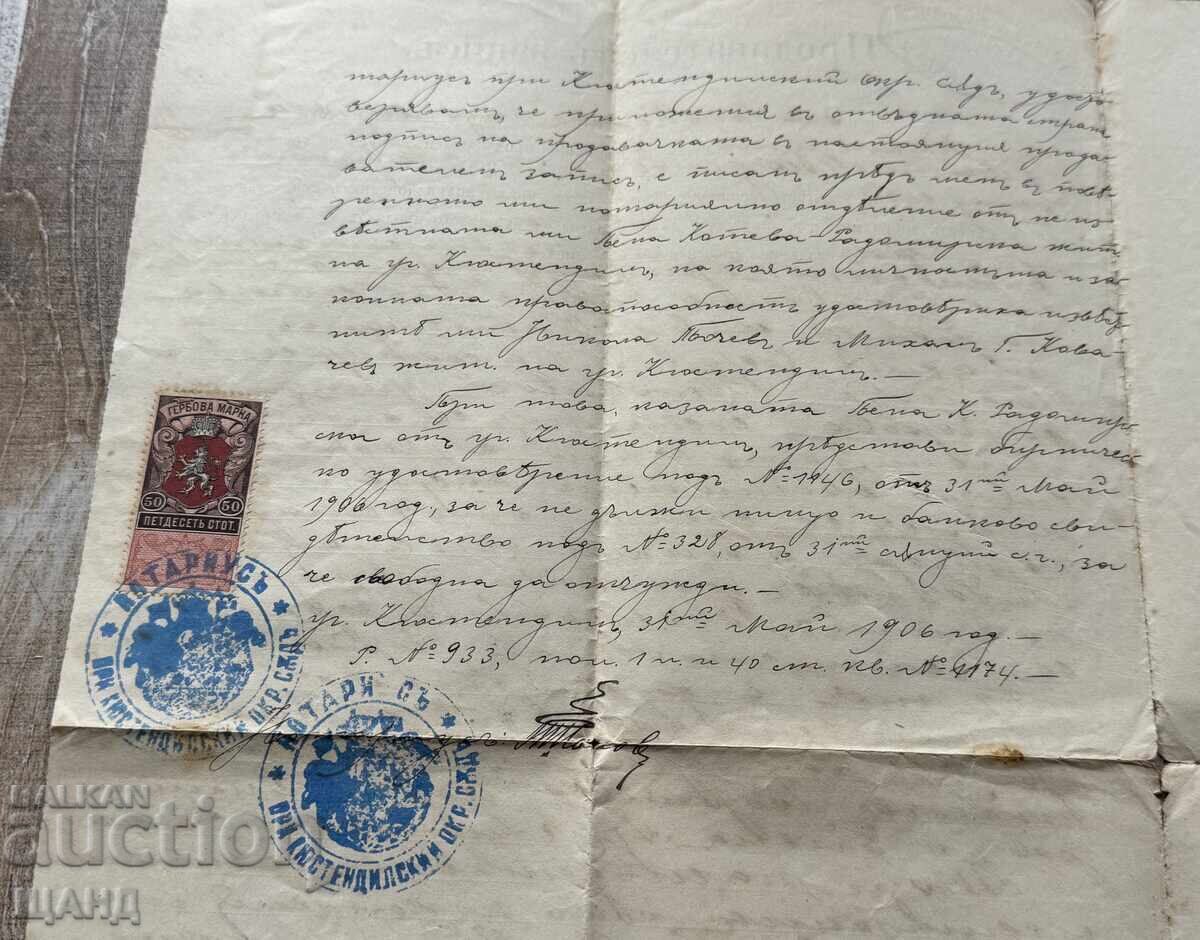 тариусъ при Кюстендилский окр. сѫдъ, удосто
верявамъ, че приложения въ отвъдната стран
подпис на продавачката въ настоящия прода
вателен запис, е писан прѣдъ мен въ повѣ
реното ми нотариално отдѣление отъ не из
вѣстната ми Бена Котева-Радомирска жит.
на гр. Кюстендилъ, на която личностьта и за
конната правоспособность удостовѣриха извѣс
нитѣ ми Никола Пъчев и Михаил Г. Кова-
чев жит. на гр. Кюстендилъ. —
При това, казаната Бена К. Радомир
ска отъ гр. Кюстендилъ, прѣдстави бирничес
ко удостовѣрение подъ № 1146, отъ 31ий Май
1906 год., за че не дължи нищо и банково сви-
дѣтелство подъ № 328, отъ 31ий сѫщий с.г., за
че свободна да отчужди. —
гр. Кюстендилъ, 31ий Май 1906 год. —
Р. № 933, пол. 1 л. и 40 ст. кв. № 1174. —
ГЕРБОВА МАРКА
50 50
ПЕТДЕСЕТЬ СТОТ.
НОТАРИУСЪ
ПРИ КЮСТЕНДИЛСКИЙ ОКР. СѪДЪ
НОТАРИУСЪ
ПРИ КЮСТЕНДИЛСКИЙ ОКР. СѪДЪ
BALKAN
auction
ЩАНД